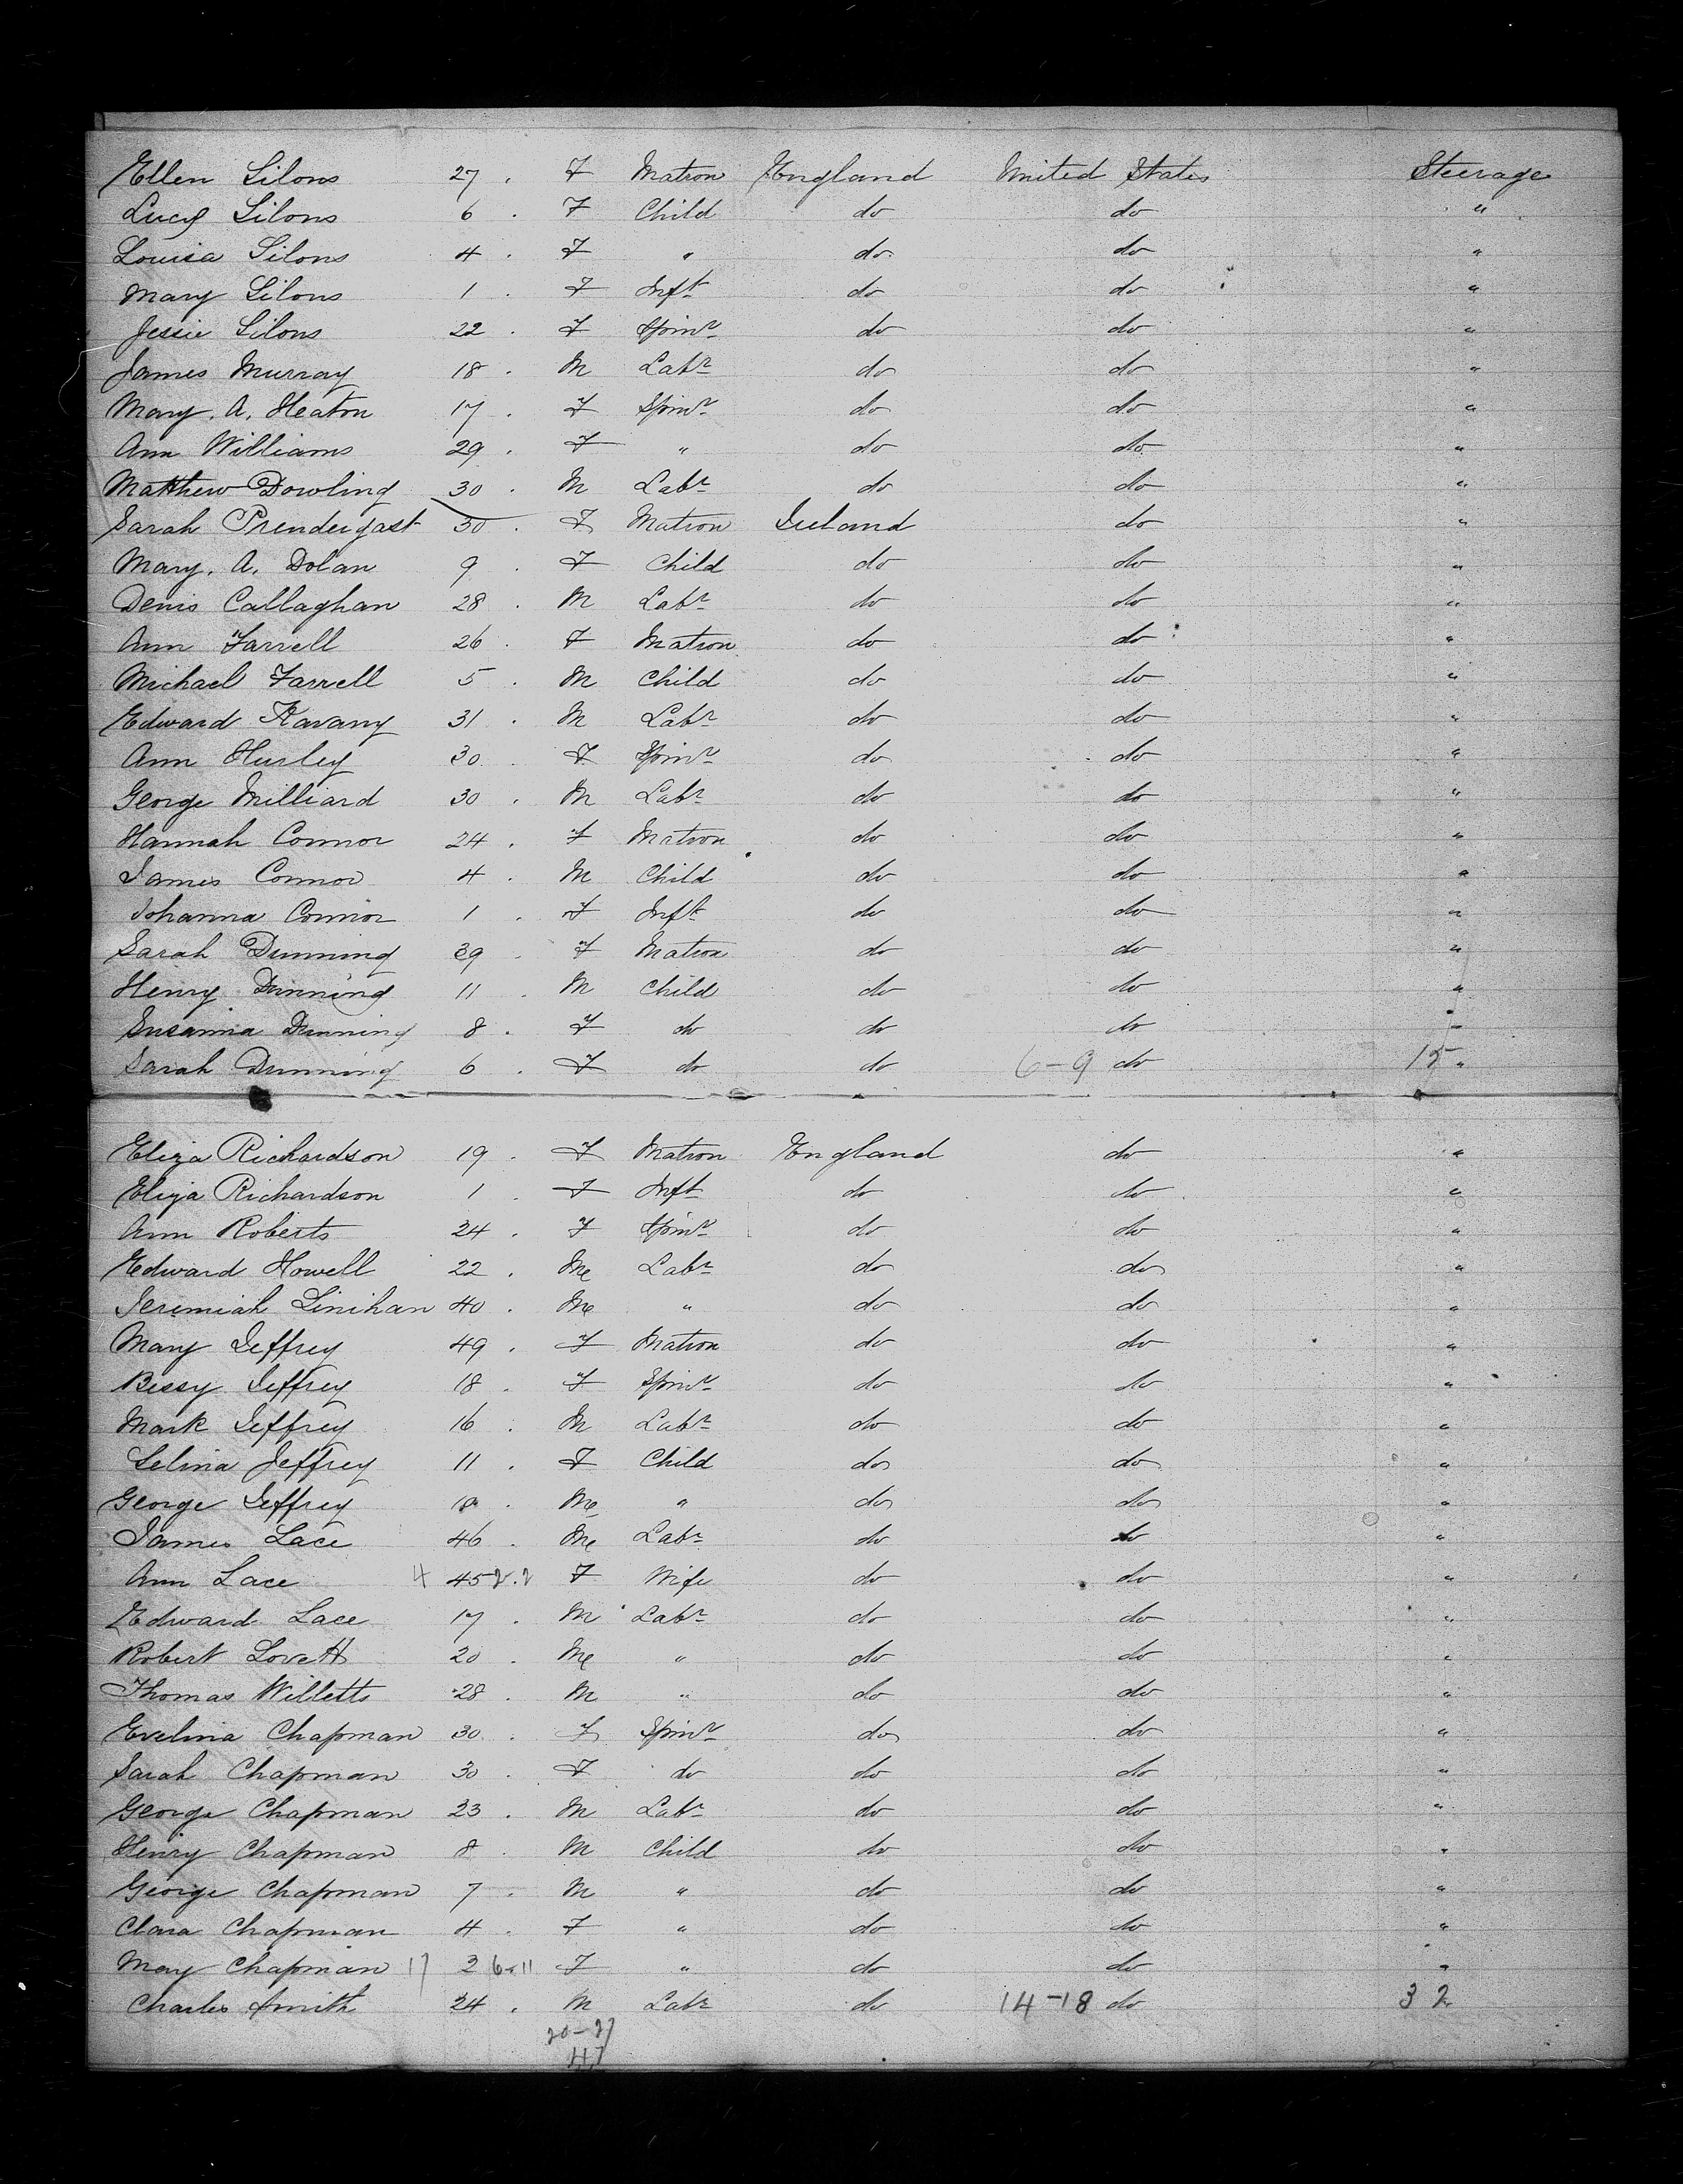 Ellen Silons 27 . F Matron England United States Steerage
Lucy Silons 6 . F Child do do "
Louisa Silons 4 . F " do do "
Mary Silons 1 . F Inft do do "
Jessie Silons 22 . F Spinr do do "
James Murray 18 . M Labr do do "
Mary. A. Heaton 17 . F Spinr do do "
Ann Williams 29 . F " do do "
Matthew Dowling 30 . M Labr do do "
Sarah Prendergast 30 . F Matron Ireland do "
Mary. A. Dolan 9 . F Child do do "
Denis Callaghan 28 . M Labr do do "
Ann Farrell 26 . F Matron do do "
Michael Farrell 5 . M Child do do "
Edward Kavany 31 . M Labr do do "
Ann Hurley 30 . F Spinr do do "
George Milliard 30 . M Labr do do "
Hannah Connor 24 . F Matron do do "
James Connor 4 . M Child do do "
Johanna Connor 1 . F Inft do do "
Sarah Dunning 39 . F Matron do do "
Henry Dunning 11 . M Child do do "
Susanna Dunning 8 . F do do do "
Sarah Dunning 6 . F do do 6-9 do 15 "
Eliza Richardson 19 . F Matron England do "
Eliza Richardson 1 . F Inft do do "
Ann Roberts 24 . F Spinr do do "
Edward Howell 22 . M Labr do do "
Jeremiah Linihan 40 . M " do do "
Mary Jeffrey 49 . F Matron do do "
Bessy Jeffrey 18 . F Spinr do do "
Mark Jeffrey 16 . M Labr do do "
Selina Jeffrey 11 . F Child do do "
George Jeffrey 10 . M " do do "
James Lace 46 . M Labr do do "
Ann Lace 4 45 2.2 F Wife do do "
Edward Lace 17 . M Labr do do "
Robert Lovett 20 . M " do do "
Thomas Willetts 28 . M " do do "
Evelina Chapman 30 . F Spinr do do "
Sarah Chapman 30 . F do do do "
George Chapman 23 . M Labr do do "
Henry Chapman 8 . M Child do do "
George Chapman 7 . M " do do "
Clara Chapman 4 . F " do do "
May Chapman 17 2 6-11 F " do do "
Charles Smith 24 . M Labr do 14-18 do 32
20-27
47